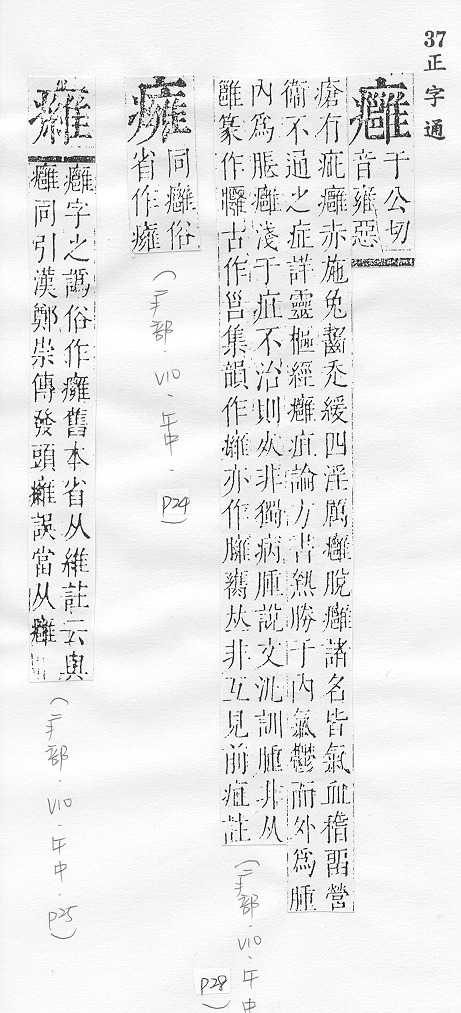 37正字通
癰
于公切
音雍惡
瘡有疵癰赤施兔齧禿緩四淫厲癰脫癰諸名皆氣血稽畱營
衞不通之症詳靈樞經癰疽論方書熱勝于內氣鬱而外爲腫
內爲脹癰淺于疽不治則久非獨病腫說文汎訓腫非从
雝篆作古作邕集韻作亦作臃非互見前疽註
（疒部·V10·午中·P28）
癕
同癰俗
省作癕
（疒部·V10·午中·P24）
癰字之譌俗作癕舊本省从維註云與
癰同引漢鄭崇傳發頭癰誤當从癰
（疒部·V10·午中·P25）